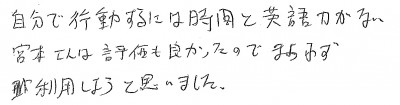 自分で行動するには時間と英語力がない
宮本さんは評価も良かったので まよわず
利用しようと思いました.